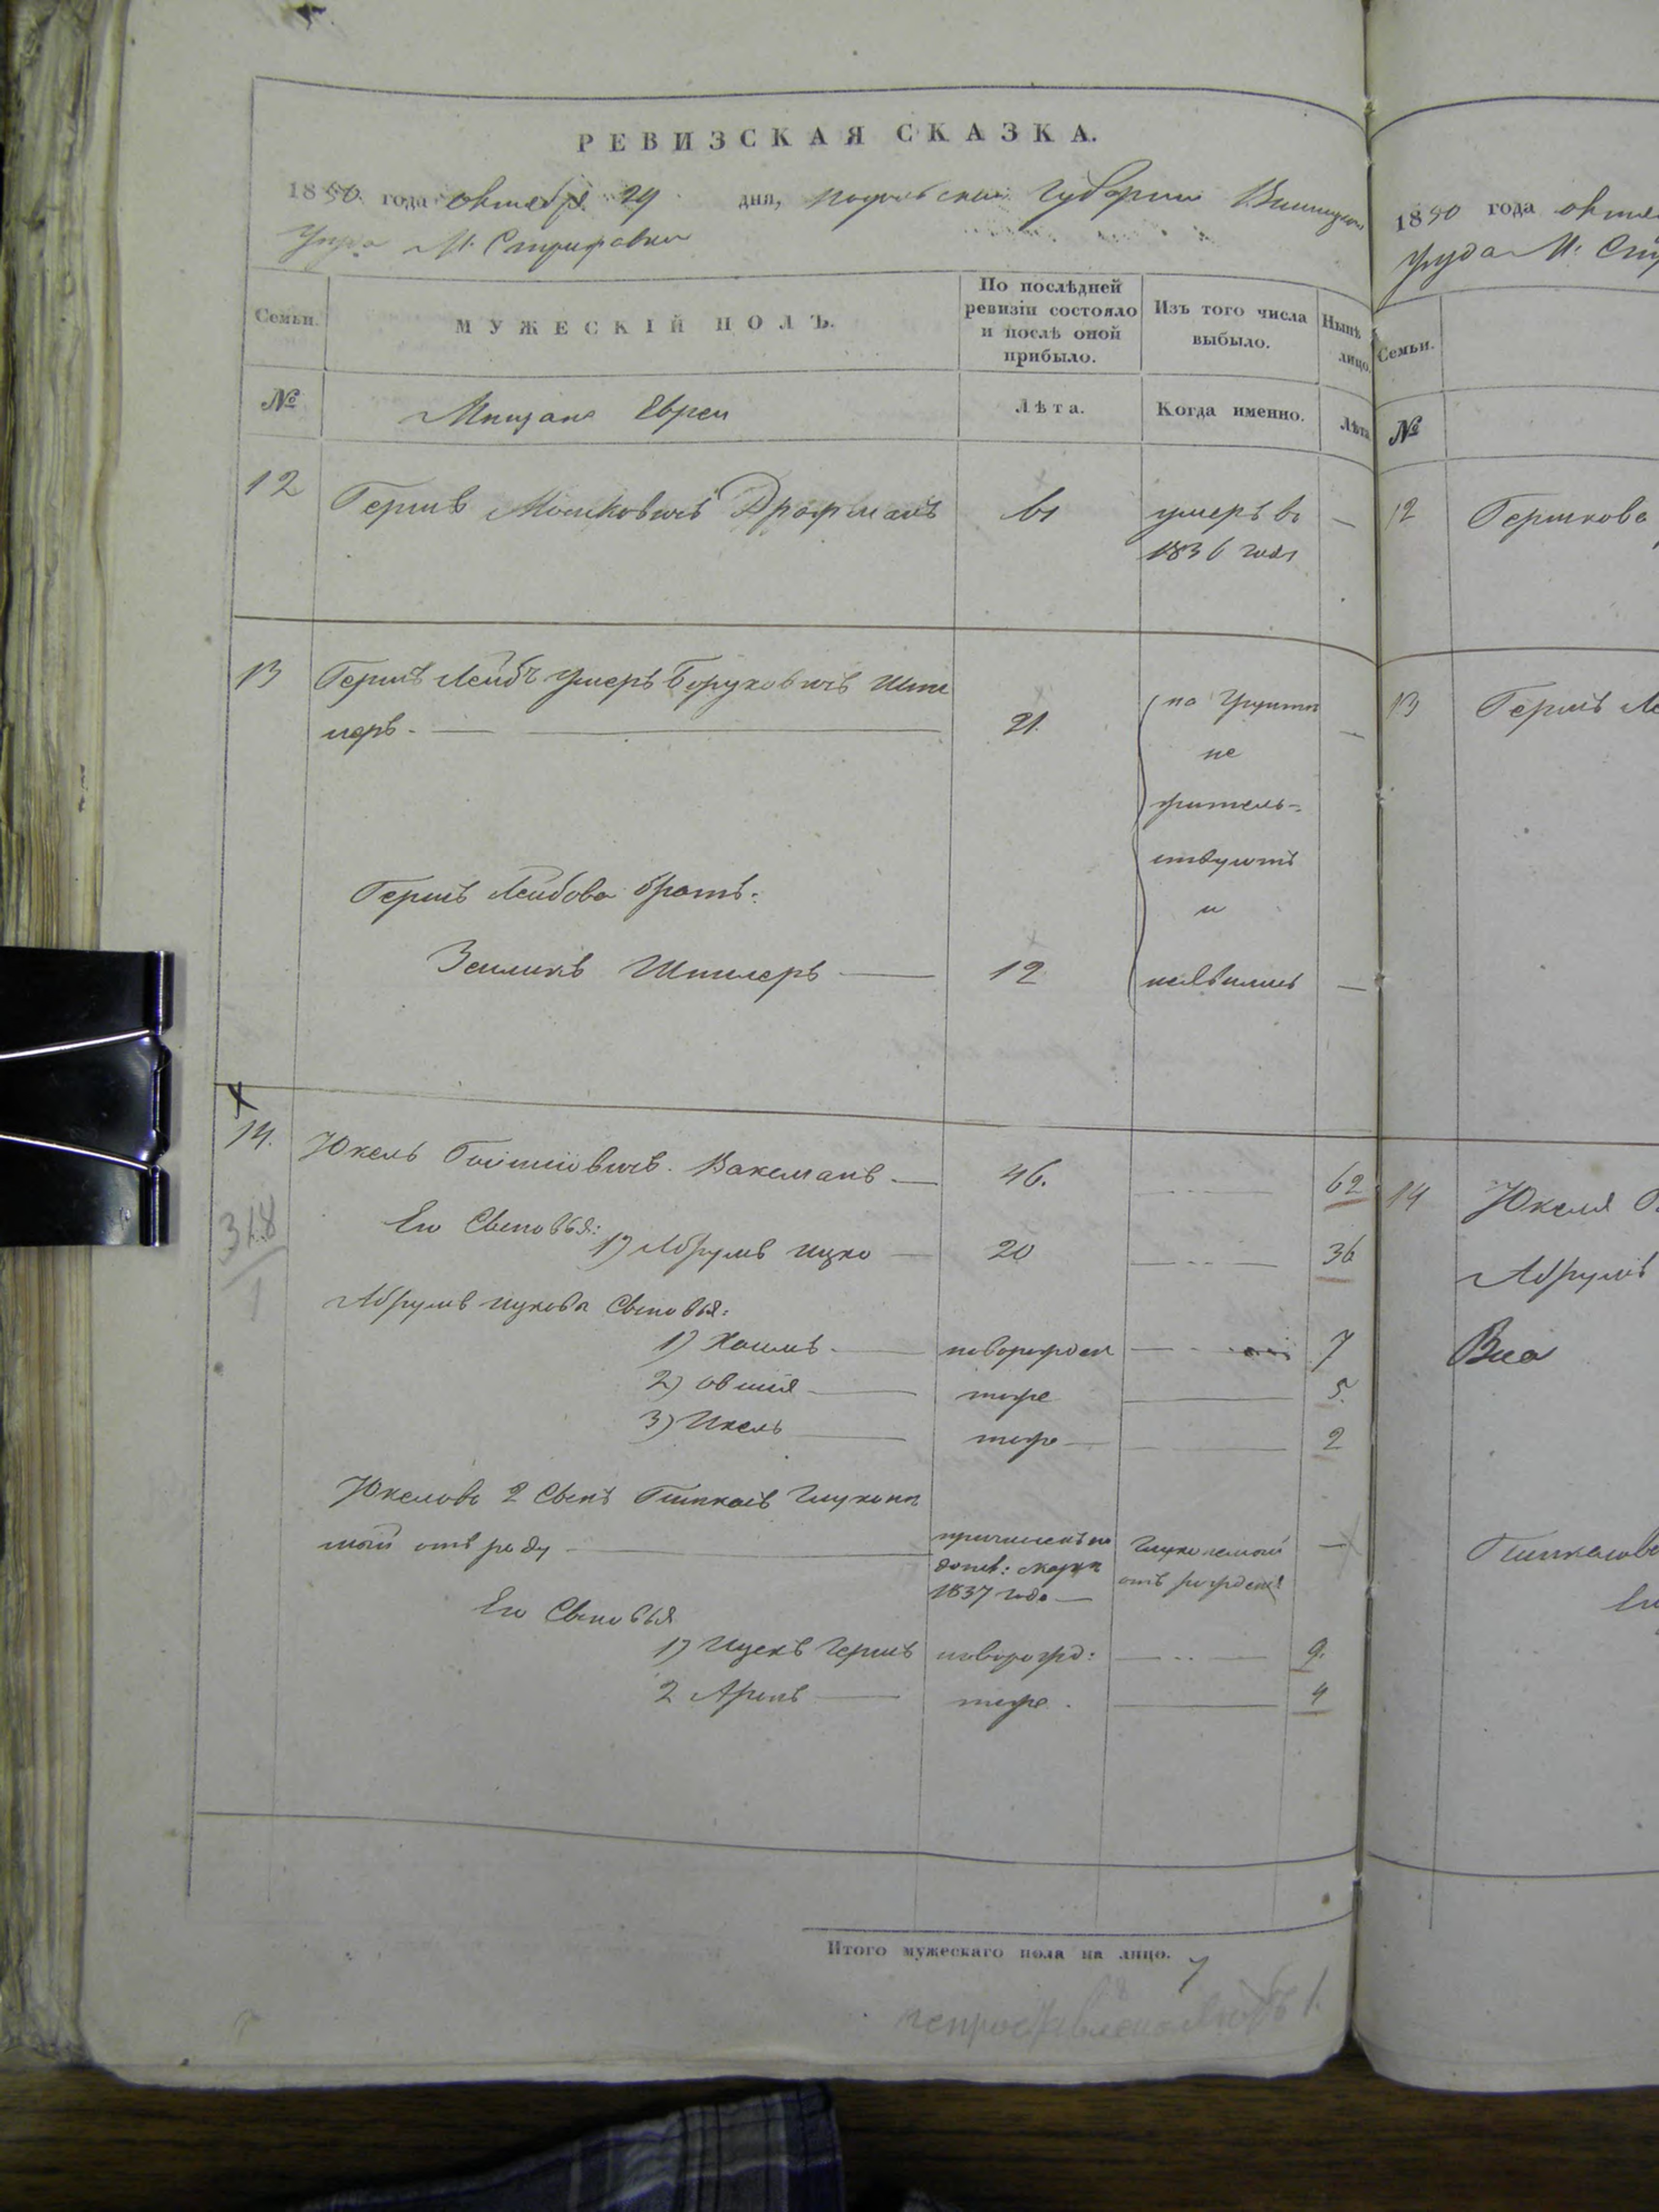 РЕВИЗСКАЯ СКАЗКА.
1850 года октября 29 дня, Подольской Губернии Винницкаго
уезда М. Стрижовки
Семьи.
МУЖЕСКІЙ ПОЛЪ.
По послѣдней
ревизіи состояло
и послѣ оной
прибыло.
Изъ того числа
выбыло.
Нынѣ
лицо.
№
Мещане Евреи
Лѣта.
Когда именно.
Лѣта
12 Гершъ Мошковичъ 61 умеръ въ —
1836 годе
13 Гершъ Лейбъ Умеръ Боруховичъ Шпи
леръ. — 21. по —
не
жительствуютъ
и
Гершъ Лейбова братъ:
Зейликъ Шпилеръ — 12 неявились —
14. Юкель Ваксманъ — 46. 62
318
1
Его Сыновья:
1) Абрумъ Ицко — 20 36
Абрумъ Ицкова Сыновья:
1) Хаимъ — новорожден 7
2) Овшія — тоже 5.
3) Икель — тоже — 2
Юкелова 2 Сынъ Пинкасъ Глухоне
мой отъ роду — причисленъ по Глухонемой —
1837 года — отъ рожден
Его Сыновья
1) Ицекъ Гершъ новорожд: 9.
2 Аронъ — тоже. 4
Итого мужескаго пола на лицо. 7
1850 года октя
уезда М. Стр
Семьи.
№
12 Гершкова
13 Гершъ Ле
14 Юкеля
Абрумъ
Пинкасова
Ег